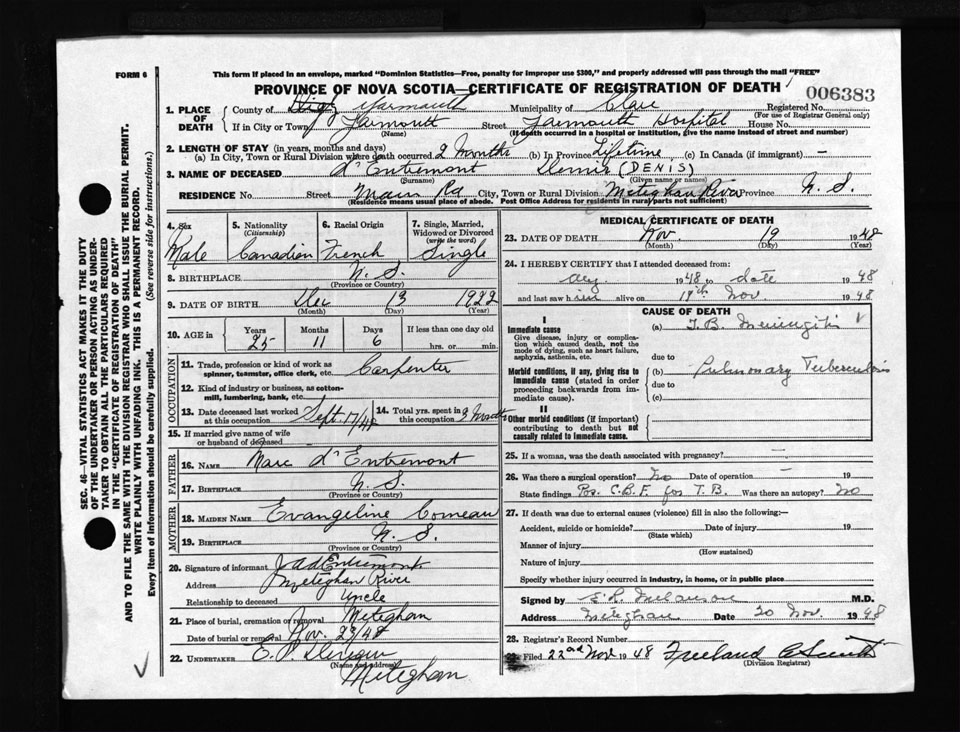 FORM 6
This form if placed in an envelope, marked "Dominion Statistics—Free, penalty for improper use $300," and properly addressed will pass through the mail "FREE"
PROVINCE OF NOVA SCOTIA—CERTIFICATE OF REGISTRATION OF DEATH
006383
1. PLACE OF DEATH County of Digby Yarmouth Municipality of Clare Registered No.
(For use of Registrar General only)
If in City or Town Yarmouth Street Yarmouth Hospital House No.
(Name) (If death occurred in a hospital or institution, give the name instead of street and number)
2. LENGTH OF STAY (in years, months and days)
(a) In City, Town or Rural Division where death occurred 2 Months (b) In Province Lifetime (c) In Canada (if immigrant) —
3. NAME OF DECEASED d'Entremont Dennis (DENIS)
(Surname) (Given name or names)
RESIDENCE No. Street Main Rd City, Town or Rural Division Meteghan River Province N. S.
(Residence means usual place of abode. Post Office Address for residents in rural parts not sufficient)
4. Sex
Male
5. Nationality
(Citizenship)
Canadian
6. Racial Origin
French
7. Single, Married, Widowed or Divorced
(write the word)
Single
8. BIRTHPLACE N. S.
(Province or Country)
9. DATE OF BIRTH Dec 13 1922
(Month) (Day) (Year)
10. AGE in Years Months Days If less than one day old
25 11 6 hrs. or min.
OCCUPATION
11. Trade, profession or kind of work as spinner, teamster, office clerk, etc. Carpenter
12. Kind of industry or business, as cotton-mill, lumbering, bank, etc.
13. Date deceased last worked at this occupation Sept 17/48
14. Total yrs. spent in this occupation 9 Months
15. If married give name of wife or husband of deceased
FATHER
16. NAME Marc d'Entremont
17. BIRTHPLACE N. S.
(Province or Country)
MOTHER
18. MAIDEN NAME Evangeline Comeau
19. BIRTHPLACE N. S.
(Province or Country)
20. Signature of informant d'Entremont
Address Meteghan River
Relationship to deceased Uncle
21. Place of burial, cremation or removal Meteghan
Date of burial or removal Nov. 22/48
22. UNDERTAKER E. P.
(Name and address)
Meteghan
MEDICAL CERTIFICATE OF DEATH
23. DATE OF DEATH Nov. 19 1948
(Month) (Day) (Year)
24. I HEREBY CERTIFY that I attended deceased from:
1948 to date 1948
and last saw him alive on 18th Nov 1948
CAUSE OF DEATH
I
Immediate cause
Give disease, injury or complication which caused death, not the mode of dying, such as heart failure, asphyxia, asthenia, etc.
(a) T. B. Meningitis
due to
Morbid conditions, if any, giving rise to immediate cause (stated in order proceeding backwards from immediate cause).
(b) Pulmonary Tuberculosis
due to
(c)
II
Other morbid conditions (if important) contributing to death but not causally related to immediate cause.
25. If a woman, was the death associated with pregnancy? —
26. Was there a surgical operation? No Date of operation — 19
State findings Pos. C.B.F. for T.B. Was there an autopsy? No
27. If death was due to external causes (violence) fill in also the following:—
Accident, suicide or homicide? Date of injury 19
(State which)
Manner of injury
(How sustained)
Nature of injury
Specify whether injury occurred in industry, in home, or in public place
Signed by M.D.
Address Meteghan Date 20 Nov. 1948
28. Registrar's Record Number
29. Filed 22nd Nov 1948 Freeland Smith
(Division Registrar)
SEC. 46—VITAL STATISTICS ACT MAKES IT THE DUTY
OF THE UNDERTAKER OR PERSON ACTING AS UNDER-
TAKER TO OBTAIN ALL THE PARTICULARS REQUIRED
IN THE "CERTIFICATE OF REGISTRATION OF DEATH"
AND TO FILE THE SAME WITH THE DIVISION REGISTRAR WHO SHALL ISSUE THE BURIAL PERMIT.
WRITE PLAINLY WITH UNFADING INK. THIS IS A PERMANENT RECORD.
Every item of information should be carefully supplied. (See reverse side for instructions.)